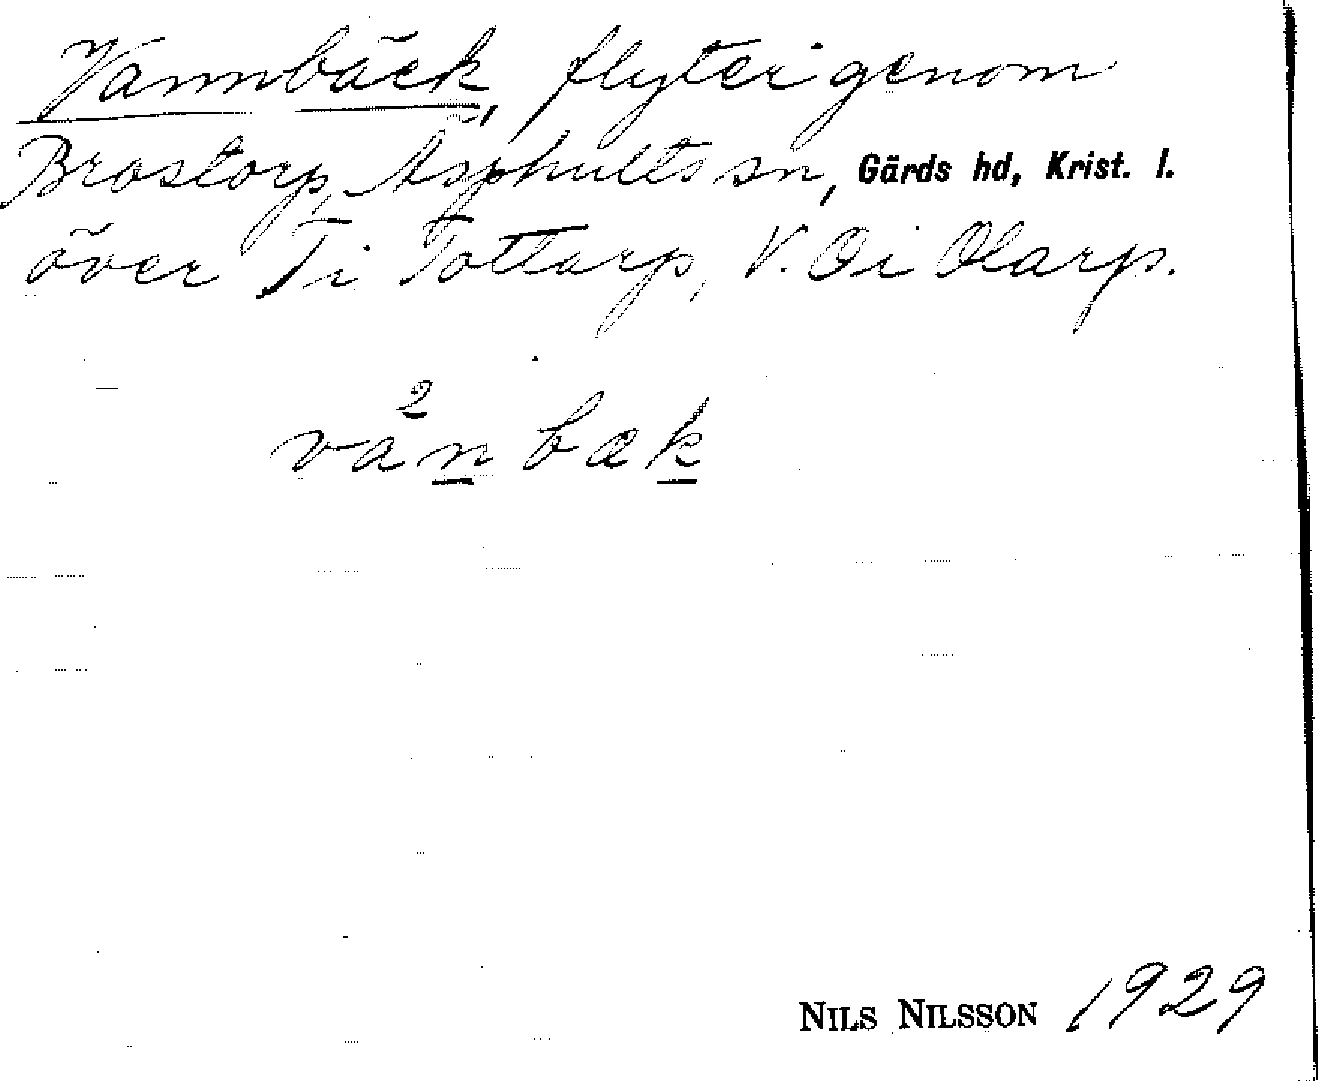 Vannbäck, flyter genom
Brostorp, Asphults sn, Gärds hd, Krist. l.
över Ti Tottarp, V. Oi Olarp.
va²n bæk
NILS NILSSON 1929